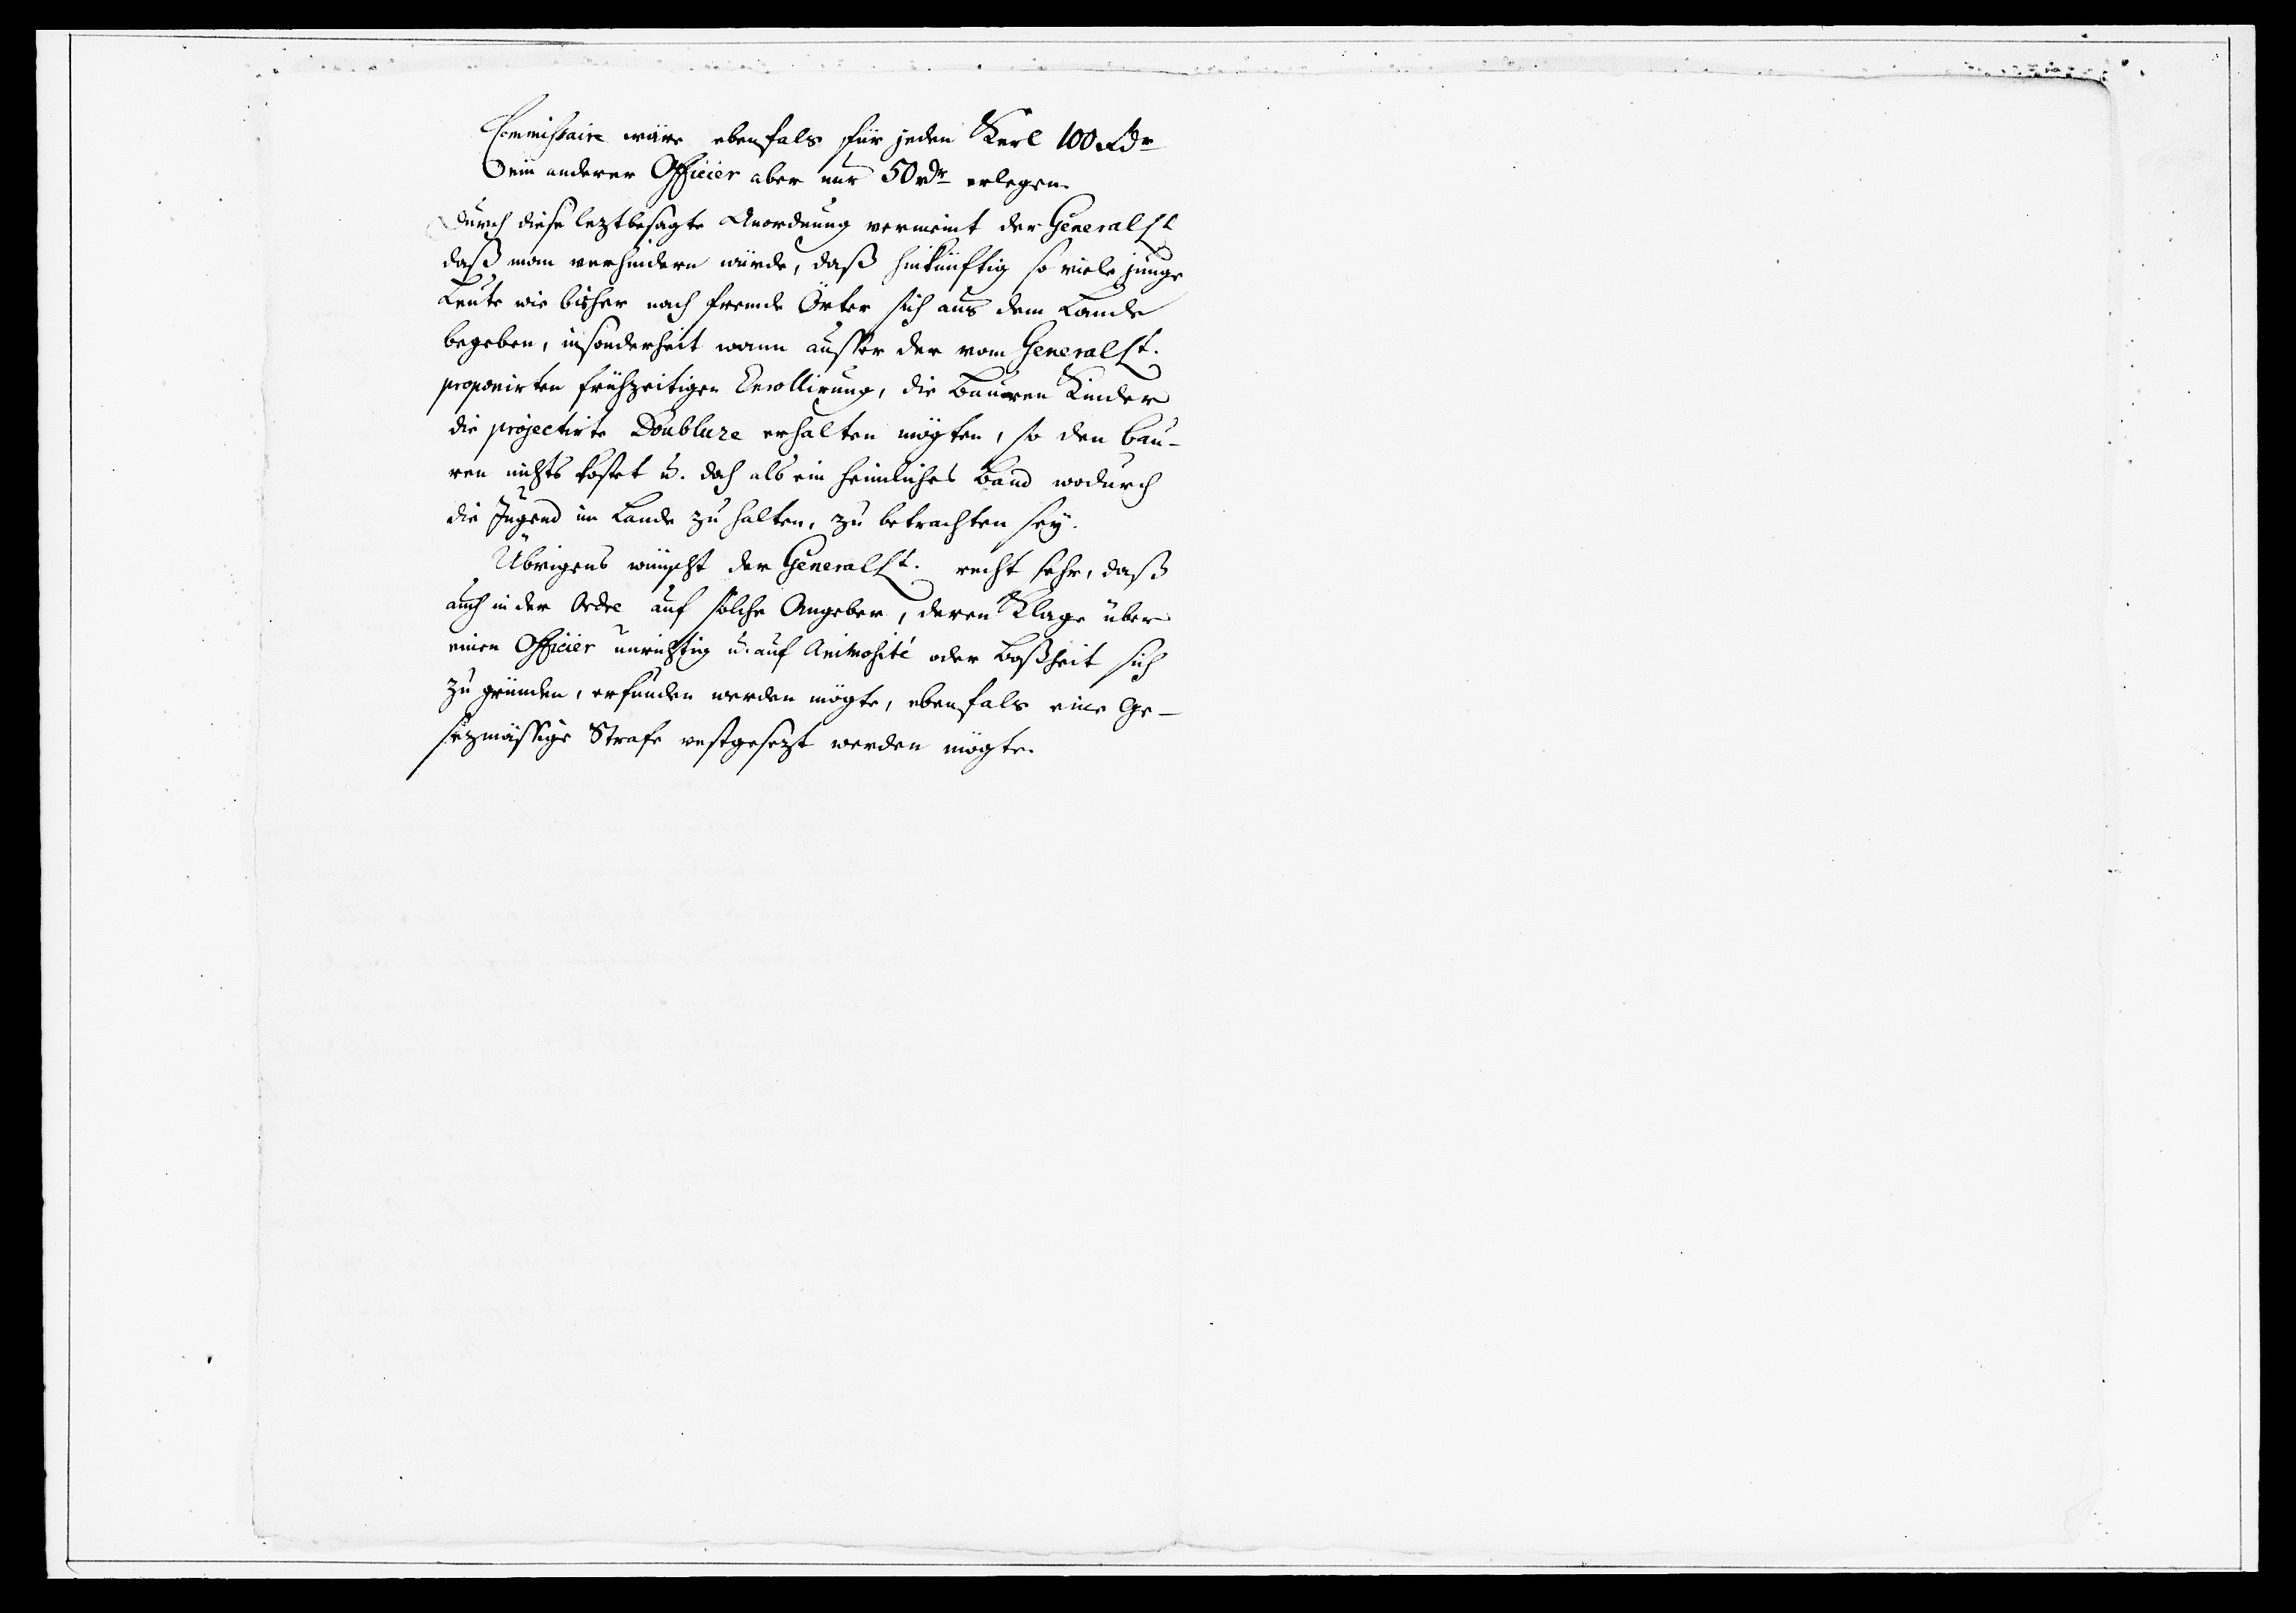 Commissaire wäre ebenfals für jeden Kerl 100 Rdr
ein anderer Officier aber nur 50 Rdr erlegen.
Durch diese leztbesagte Anordnung vermeint der General Lt
daß man verhindern würde, daß hinkünftig so viele junge
Leute wie bisher nach fremde Örter sich aus dem Lande
begeben, insonderheit wann ausser der vom General Lt.
proponirten frühzeitigen Enrollirung, die Bauren Kinder
die projectirte Doublure erhalten mögten, so den Bau-
ren nichts kostet u. doch als ein heimliches Band wodurch
die Jugend im Lande zu halten, zu betrachten sey.
Übrigens wünscht der General Lt. recht sehr, daß
auch in der Ordre auf solche Angeber, deren Klage über
einen Officier unrichtig u. auf Animosité oder Boßheit sich
zu gründen, erfunden werden mögte, ebenfals eine Ge-
sezmässige Strafe vestgesezt werden mögte.